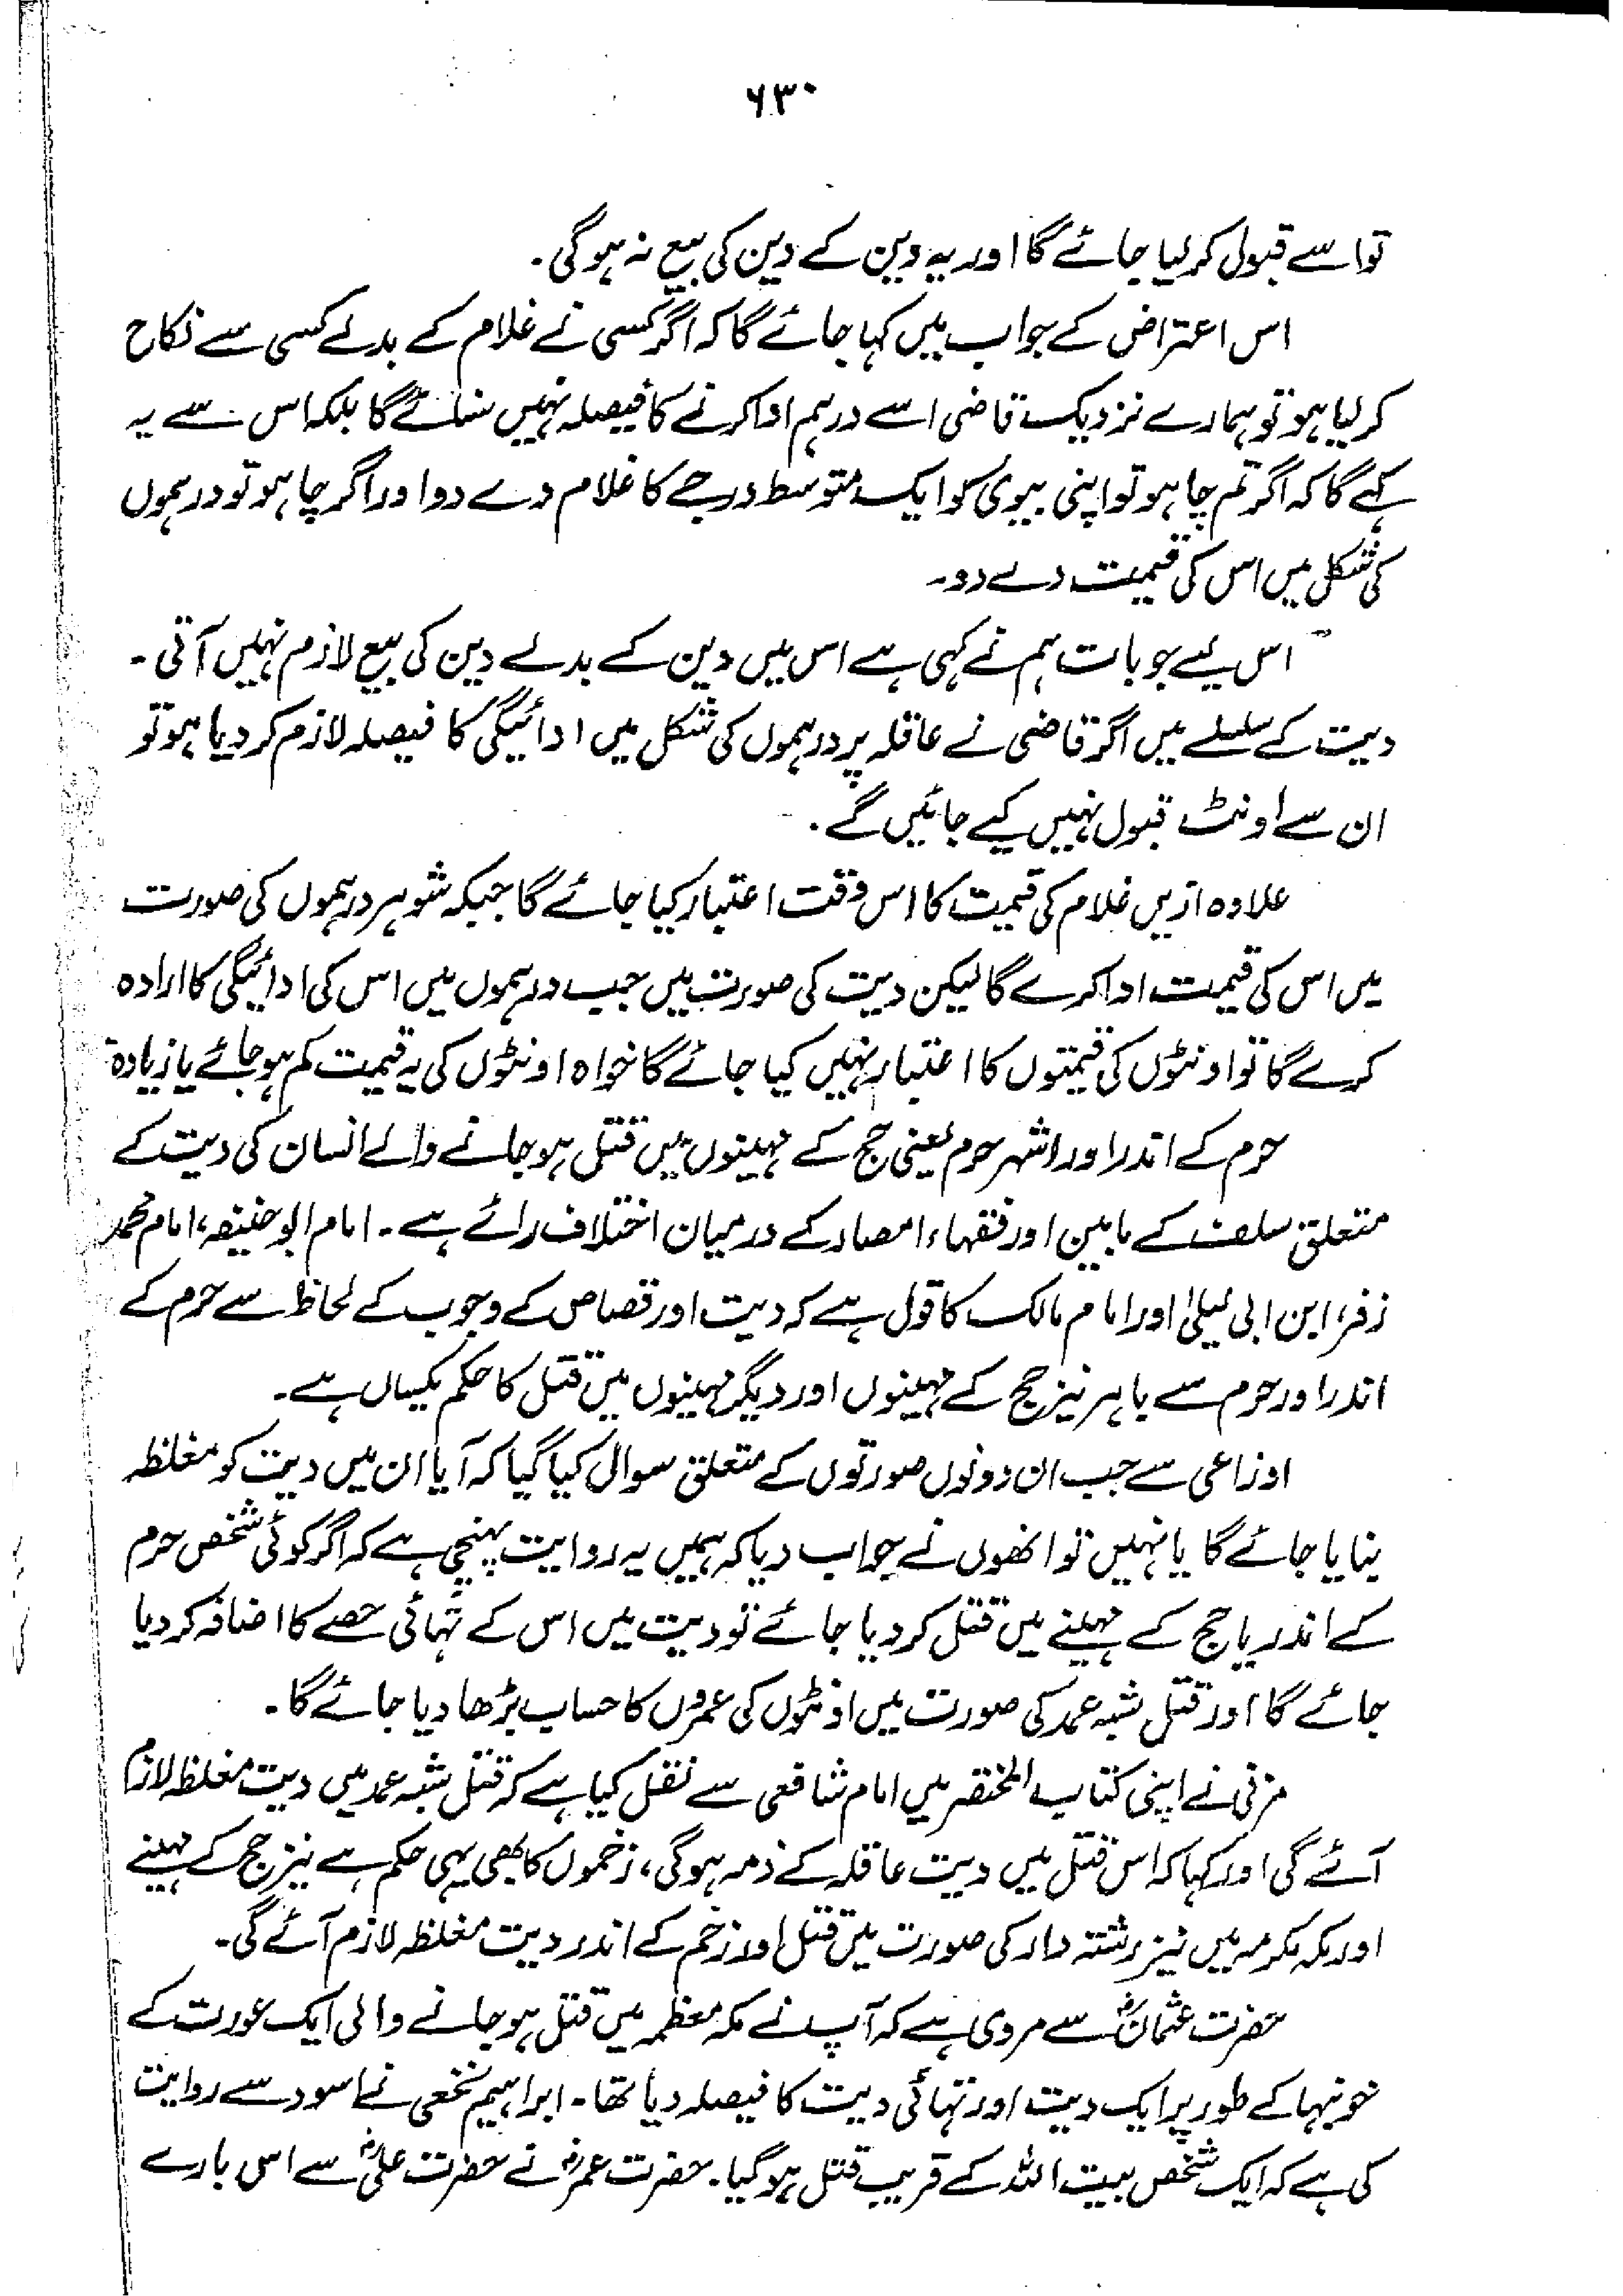 ۶۳۰
تو اسے قبول کر لیا جائے گا اور یہ دین کے دین کی بیع نہ ہوگی۔
اس اعتراض کے جواب میں کہا جائے گا کہ اگر کسی نے غلام کے بدلے کسی سے نکاح
کر لیا ہو تو ہمارے نزدیک قاضی اسے درہم ادا کرنے کا فیصلہ نہیں سنائے گا بلکہ اس سے یہ
کہے گا کہ اگر تم چاہو تو اپنی بیوی کو ایک متوسط درجے کا غلام دے دو اور اگر چاہو تو درہموں
کی شکل میں اس کی قیمت دے دو۔
اس لیے جو بات ہم نے کہی ہے اس میں دین کے بدلے دین کی بیع لازم نہیں آتی۔
دیت کے سلسلے میں اگر قاضی نے عاقلہ پر درہموں کی شکل میں ادائیگی کا فیصلہ لازم کر دیا ہو تو
ان سے اونٹ قبول نہیں کیے جائیں گے۔
علاوہ ازیں غلام کی قیمت کا اس وقت اعتبار کیا جائے گا جبکہ شوہر درہموں کی صورت
میں اس کی قیمت ادا کرے گا لیکن دیت کی صورت میں جب درہموں میں اس کی ادائیگی کا ارادہ
کرے گا تو اونٹوں کی قیمتوں کا اعتبار نہیں کیا جائے گا خواہ اونٹوں کی یہ قیمت کم ہو جائے یا زیادہ
حرم کے اندر اور اشہر حرم یعنی حج کے مہینوں میں قتل ہو جانے والے انسان کی دیت کے
متعلق سلف کے مابین اور فقہاء امصار کے درمیان اختلاف رائے ہے۔ امام ابو حنیفہ، امام محمد
زفر، ابن ابی لیلیٰ اور امام مالک کا قول ہے کہ دیت اور قصاص کے وجوب کے لحاظ سے حرم کے
اندر اور حرم سے باہر نیز حج کے مہینوں اور دیگر مہینوں میں قتل کا حکم یکساں ہے۔
اوزاعی سے جب ان دونوں صورتوں کے متعلق سوال کیا گیا کہ آیا ان میں دیت کو مغلظہ
بنایا جائے گا یا نہیں تو انھوں نے جواب دیا کہ ہمیں یہ روایت پہنچی ہے کہ اگر کوئی شخص حرم
کے اندر یا حج کے مہینے میں قتل کر دیا جائے تو دیت میں اس کے تہائی حصے کا اضافہ کر دیا
جائے گا اور قتل شبہ عمد کی صورت میں اونٹوں کی عمروں کا حساب بڑھا دیا جائے گا۔
مزنی نے اپنی کتاب المختصر میں امام شافعی سے نقل کیا ہے کہ قتل شبہ عمد میں دیت مغلظہ لازم
آئے گی اور کہا کہ اس قتل میں دیت عاقلہ کے ذمہ ہوگی، زخموں کا بھی یہی حکم ہے نیز حج کے مہینے
اور مکہ مکرمہ میں نیز رشتہ دار کی صورت میں قتل اور زخم کے اندر دیت مغلظہ لازم آئے گی۔
حضرت عثمانؓ سے مروی ہے کہ آپ نے مکہ معظمہ میں قتل ہو جانے والی ایک عورت کے
خونبہا کے طور پر ایک دیت اور تہائی دیت کا فیصلہ دیا تھا۔ ابراہیم نخعی نے اسود سے روایت
کی ہے کہ ایک شخص بیت اللہ کے قریب قتل ہو گیا۔ حضرت عمرؓ نے حضرت علیؓ سے اس بارے